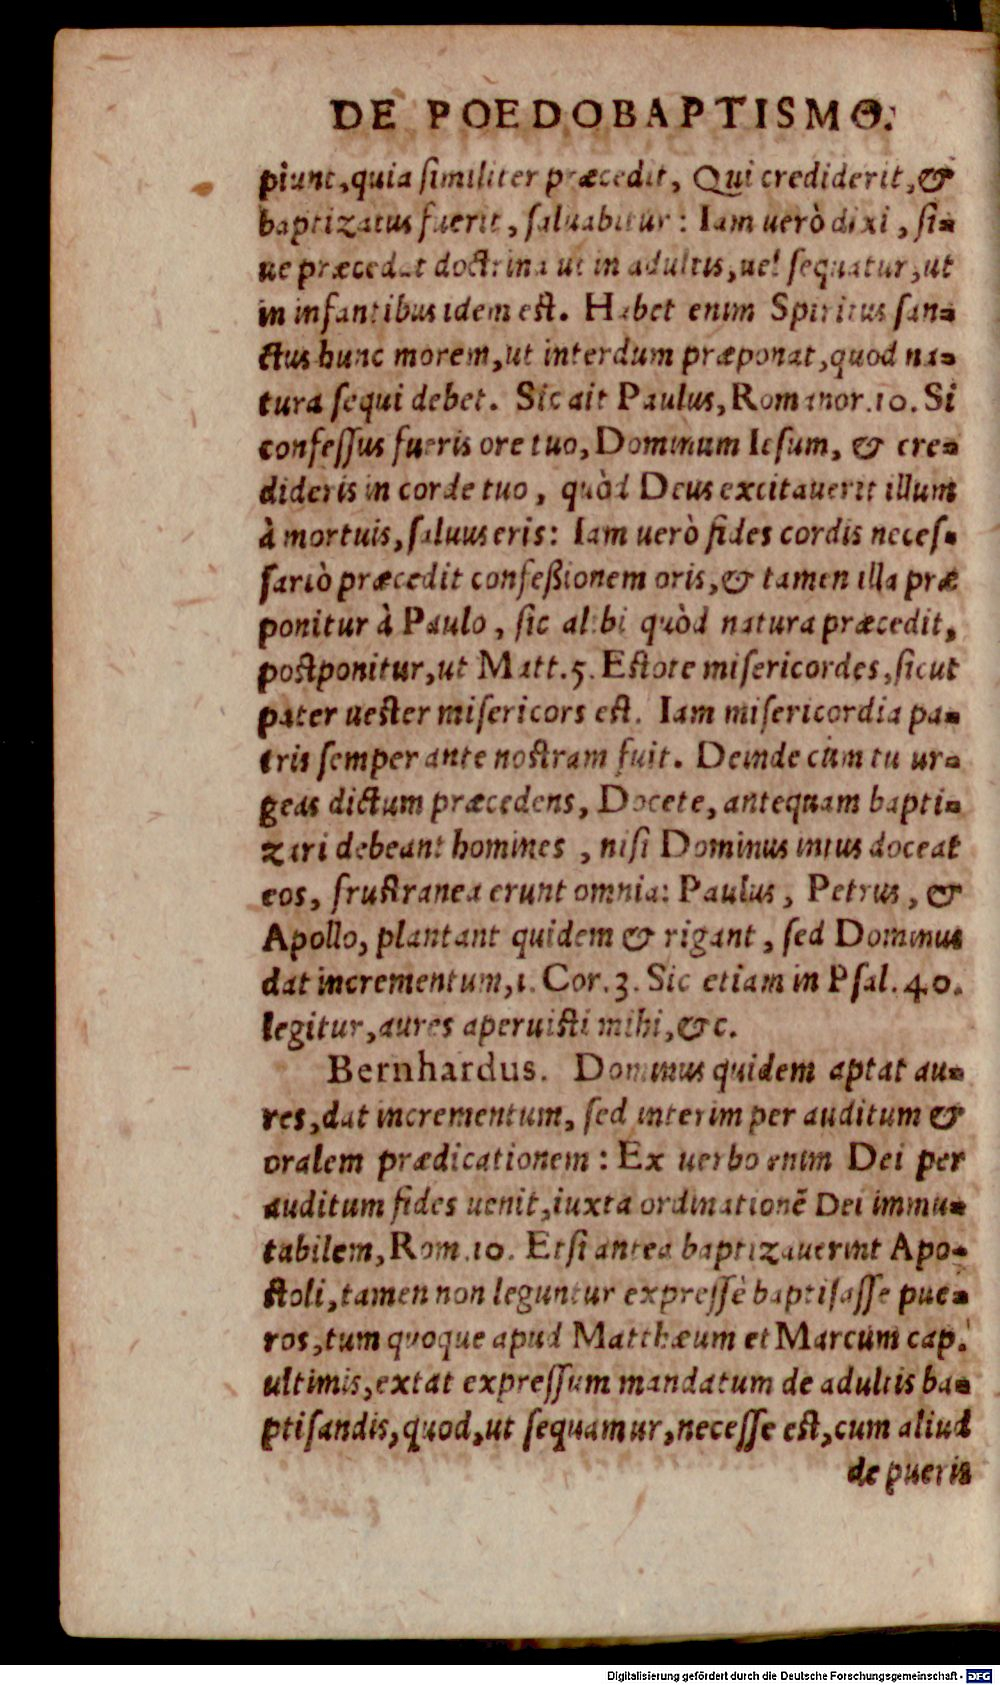 DE POEDOBAPTISMO.
piunt, quia similiter præcedit, Qui crediderit, &
baptizatus fuerit, saluabitur: Iam uerò dixi, si-
ue præcedat doctrina ut in adultis, uel sequatur, ut
in infantibus idem est. Habet enim Spiritus san-
ctus hunc morem, ut interdum præponat, quod na-
tura sequi debet. Sic ait Paulus, Romanor. 10. Si
confessus fueris ore tuo, Dominum Iesum, & cre-
dideris in corde tuo, quòd Deus excitauerit illum
à mortuis, saluus eris: Iam uerò fides cordis neces-
sariò præcedit confeßionem oris, & tamen illa præ
ponitur à Paulo, sic alibi quòd natura præcedit,
postponitur, ut Matt. 5. Estote misericordes, sicut
pater uester misericors est. Iam misericordia pa-
tris semper ante nostram fuit. Deinde cùm tu ur-
geas dictum præcedens, Docete, antequam bapti-
zari debeant homines, nisi Dominus intus doceat
eos, frustranea erunt omnia: Paulus, Petrus, &
Apollo, plantant quidem & rigant, sed Dominus
dat incrementum, 1. Cor. 3. Sic etiam in Psal. 40.
legitur, aures aperuisti mihi, &c.
Bernhardus. Dominus quidem aptat au-
res, dat incrementum, sed interim per auditum &
oralem prædicationem: Ex uerbo enim Dei per
auditum fides uenit, iuxta ordinationẽ Dei immu-
tabilem, Rom. 10. Etsi antea baptizauerint Apo-
stoli, tamen non leguntur expressè baptisasse pue-
ros, tum quoque apud Matthæum et Marcum cap.
ultimis, extat expressum mandatum de adultis ba-
ptisandis, quod, ut sequamur, necesse est, cum aliud
de pueris
Digitalisierung gefördert durch die Deutsche Forschungsgemeinschaft - DFG